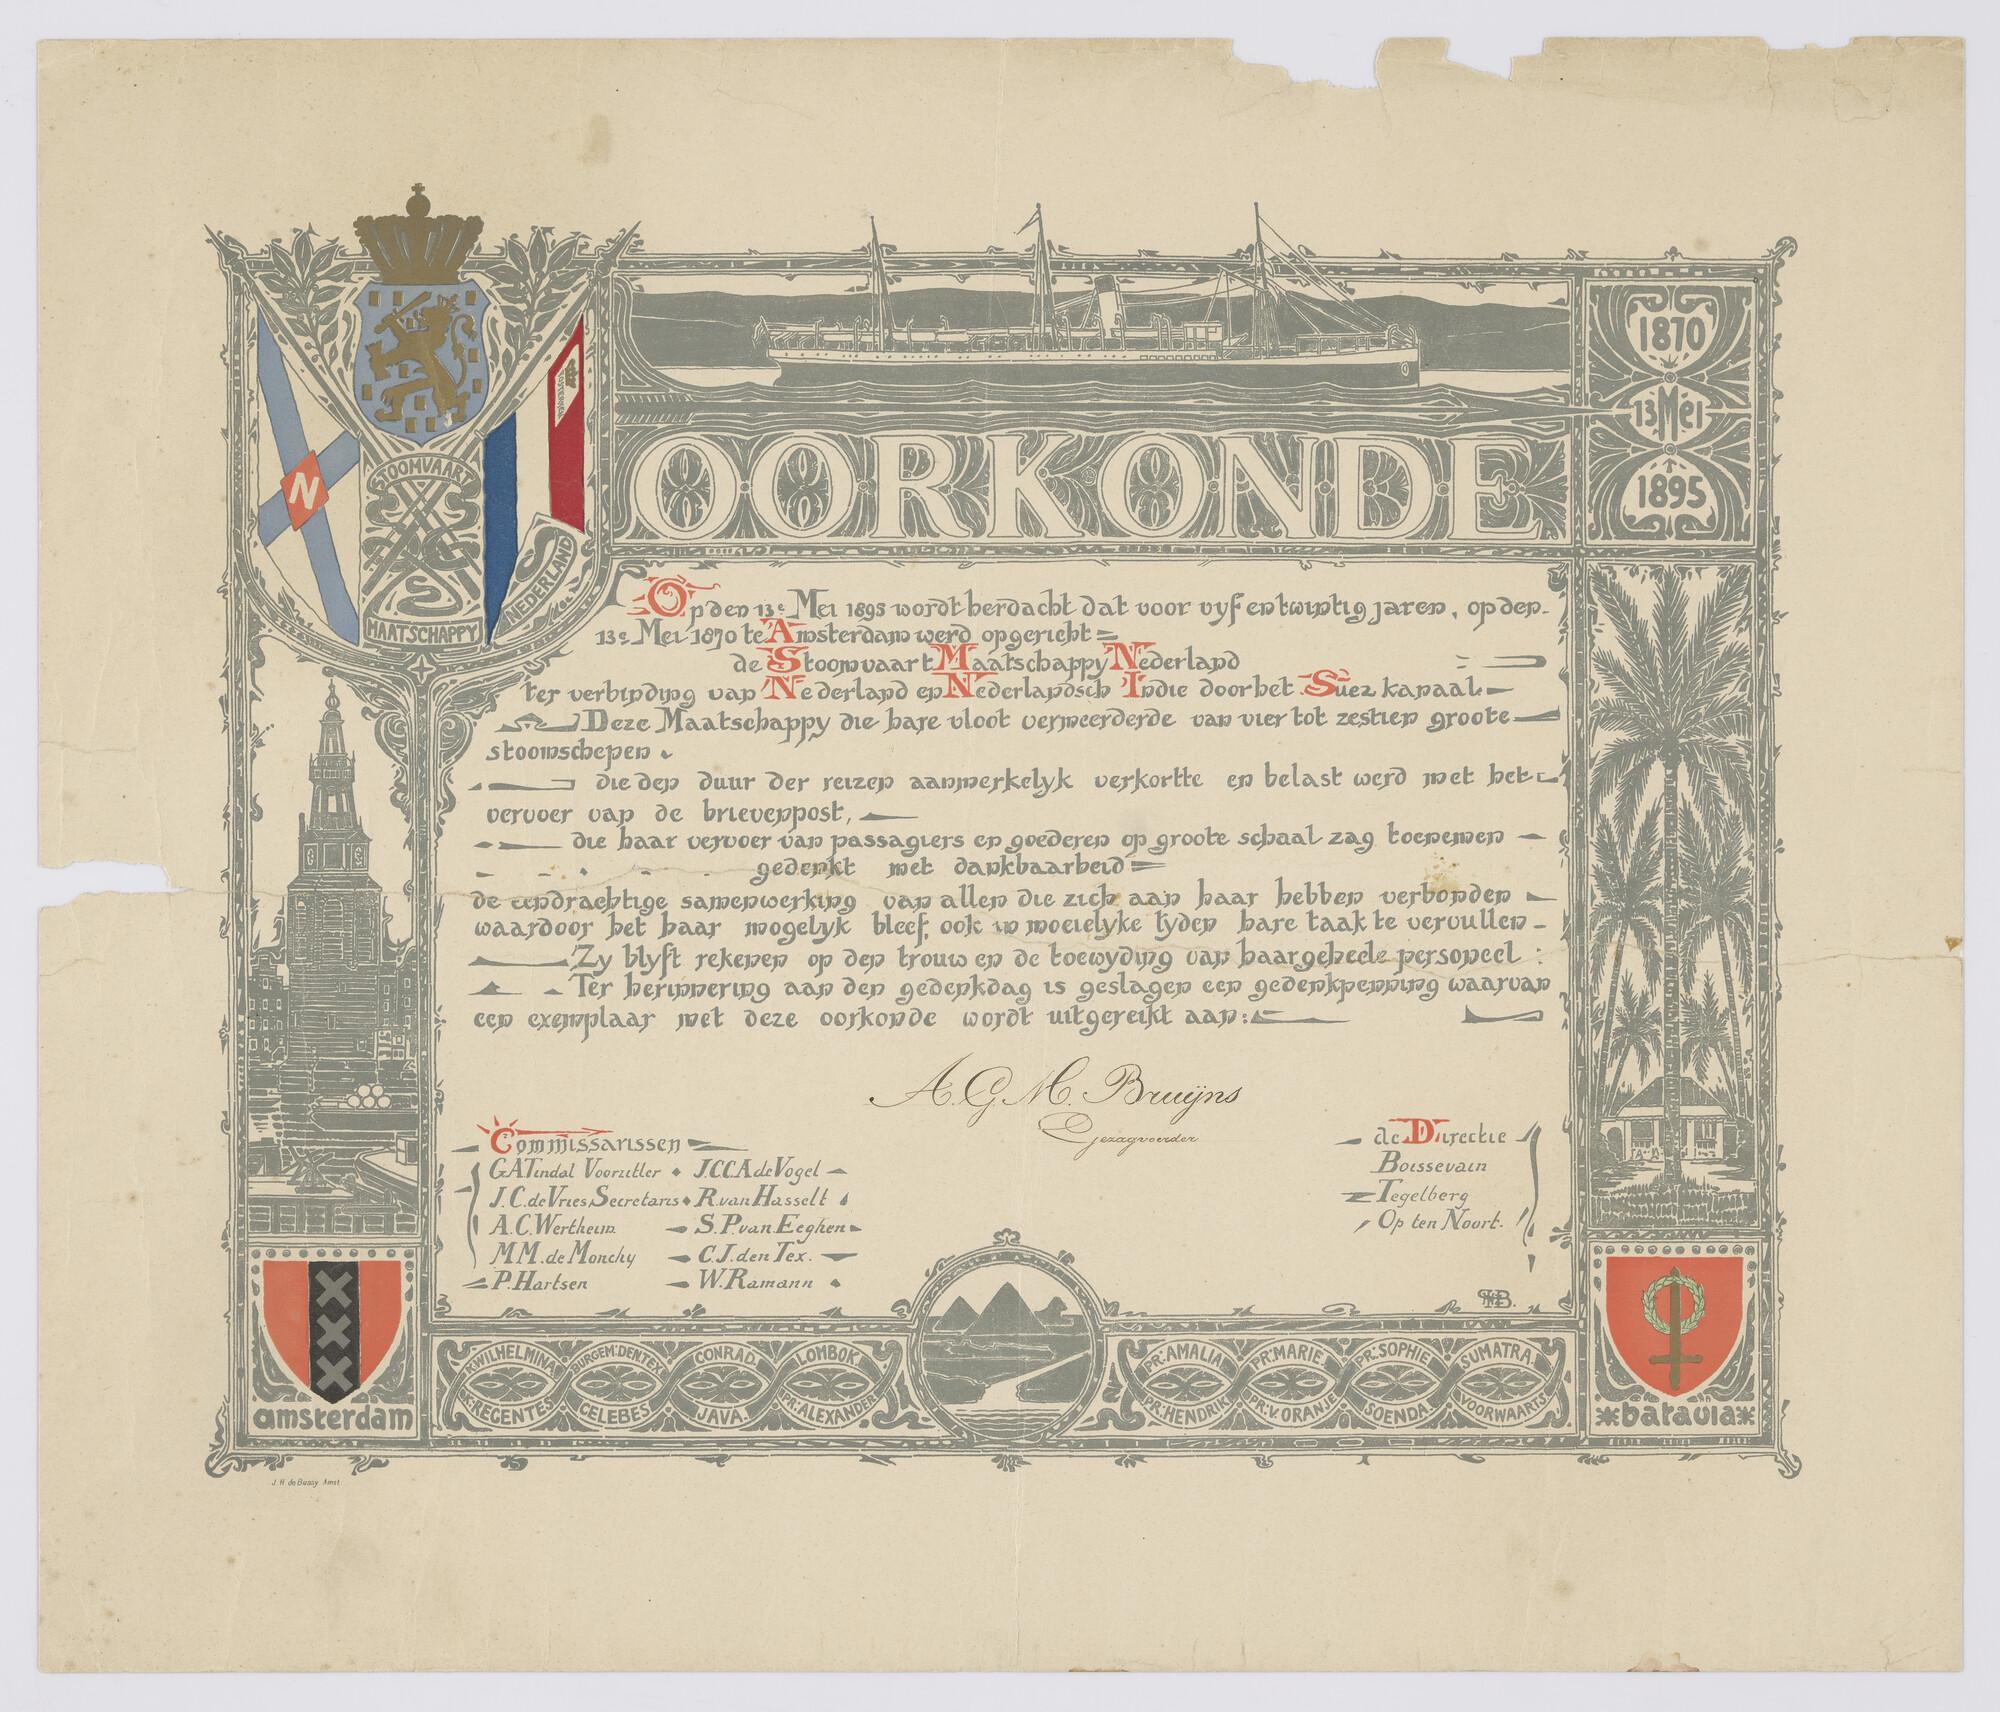 STOOMVAART
MAATSCHAPPY
NEDERLAND
N
OORKONDE
1870
13 Mei
1895
Op den 13e Mei 1895 wordt herdacht dat voor vyf en twintig jaren, op den
13e Mei 1870 te Amsterdam werd opgericht
de Stoomvaart Maatschappy Nederland
ter verbinding van Nederland en Nederlandsch Indie door het Suez kanaal.
Deze Maatschappy die hare vloot vermeerderde van vier tot zestien groote
stoomschepen.
die den duur der reizen aanmerkelyk verkortte en belast werd met het
vervoer van de brievenpost,
die haar vervoer van passagiers en goederen op groote schaal zag toenemen
gedenkt met dankbaarheid
de eendrachtige samenwerking van allen die zich aan haar hebben verbonden
waardoor het haar mogelyk bleef, ook in moeielyke tyden hare taak te vervullen
Zy blyft rekenen op den trouw en de toewyding van haar geheele personeel:
Ter herinnering aan den gedenkdag is geslagen een gedenkpenning waarvan
een exemplaar met deze oorkonde wordt uitgereikt aan:
A.G.M. Bruijns
Gezagvoerder
Commissarissen
G.A Tindal Voorzitter J.C.C.A de Vogel
J.C. de Vries Secretaris R. van Hasselt
A.C. Wertheim S.P. van Eeghen
M.M. de Monchy C.J. den Tex.
P. Hartsen W. Ramann
de Directie
Boissevain
Tegelberg
Op ten Noort.
PR. WILHELMINA BURGEM: DEN TEX CONRAD LOMBOK
K. REGENTES CELEBES JAVA. PR: ALEXANDER
PR: AMALIA PR: MARIE PR: SOPHIE SUMATRA
PR: HENDRIK PR: V. ORANJE SOENDA VOORWAARTS
amsterdam
batavia
J. H. de Bussy Amst.